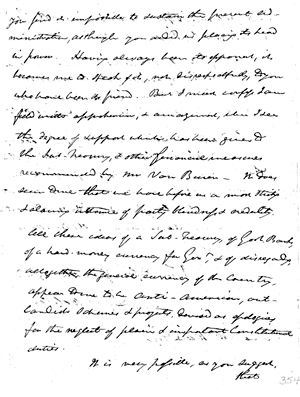 you find it impossible to sustain the present ad-
ministration, although you aided in placing its head
in power. Having always been its opponent, it
becomes me to speak of it, not disrespectfully, to you
who have been its friend. But I must confess I am
filled with apprehension, & am amazed, when I see
the degree of support which has been given to
the Sub-Treasury, & other financial measures
recommended by Mr Van Buren. It does
seem to me that we have before us a most
& alarming instance of party blindness &
All these ideas of a Sub-Treasury, of Govt Bank,
of a hard money currency for Govt & of disregarding
altogether the general currency of the Country,
appear to me to be anti-American,
schemes & projects, as apologies
for the neglect of plain & important Constitutional
duties.
It is very possible, as you suggest,
that
354